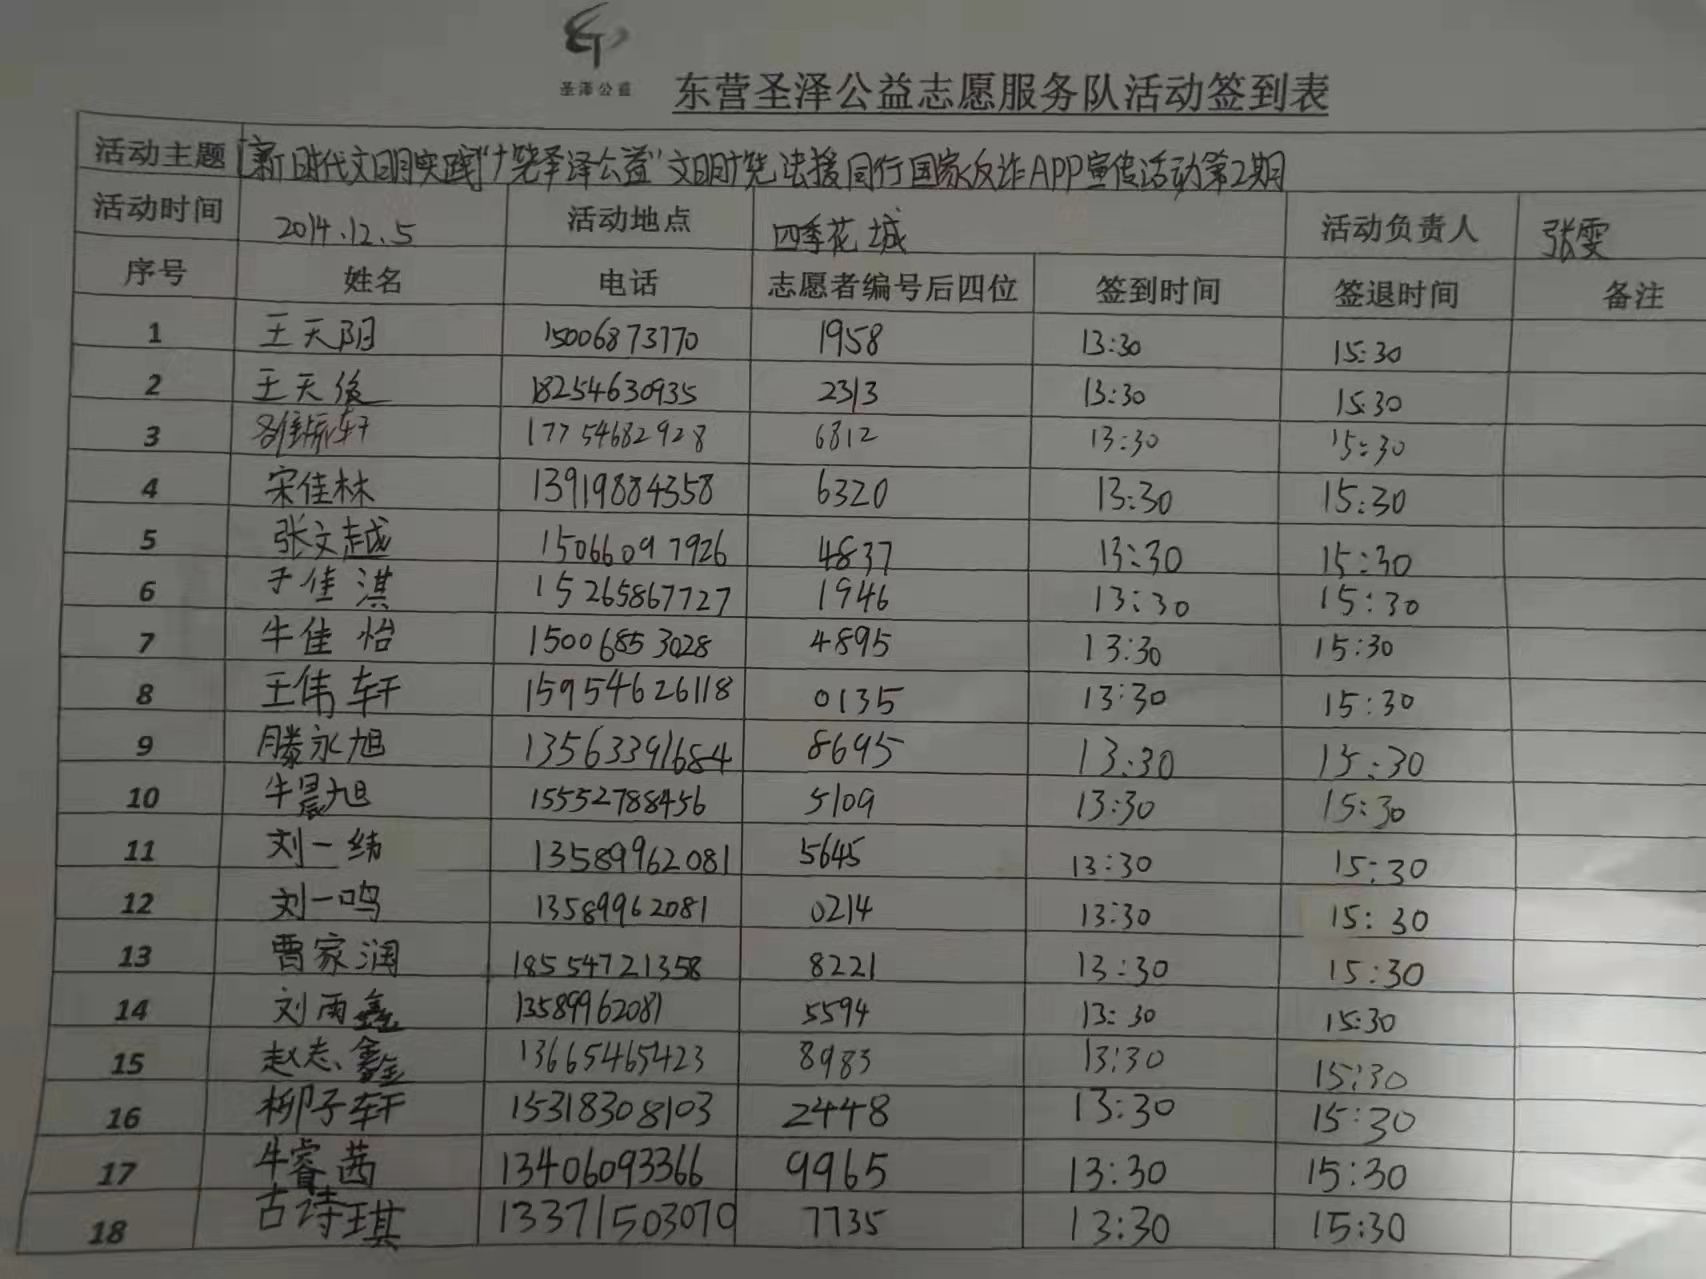 圣泽公益
东营圣泽公益志愿服务队活动签到表
活动主题 [新时代文明实践]"广饶圣泽公益"文明广饶 法援同行国家反诈APP宣传活动第2期
活动时间 2014.12.5 活动地点 四季花城 活动负责人 张雯
序号 姓名 电话 志愿者编号后四位 签到时间 签退时间 备注
1 王天阳 15006873770 1958 13:30 15:30
2 王天俊 18254630935 2313 13:30 15:30
3 17754682928 6812 13:30 15:30
4 宋佳林 13919884358 6320 13:30 15:30
5 张文越 15066097926 4837 13:30 15:30
6 于佳淇 15265867727 1946 13:30 15:30
7 牛佳怡 15006853028 4895 13:30 15:30
8 王伟轩 15954626118 0135 13:30 15:30
9 滕永旭 13563391684 8695 13:30 15:30
10 牛晨旭 15552788456 5109 13:30 15:30
11 刘一纬 13589962081 5645 13:30 15:30
12 刘一鸣 13589962081 0214 13:30 15:30
13 曹家润 18554721358 8221 13:30 15:30
14 刘雨鑫 13589962081 5594 13:30 15:30
15 赵志鑫 13665465423 8983 13:30 15:30
16 柳子轩 15318308103 2448 13:30 15:30
17 牛睿茜 13406093366 9965 13:30 15:30
18 古诗琪 13371503070 7735 13:30 15:30